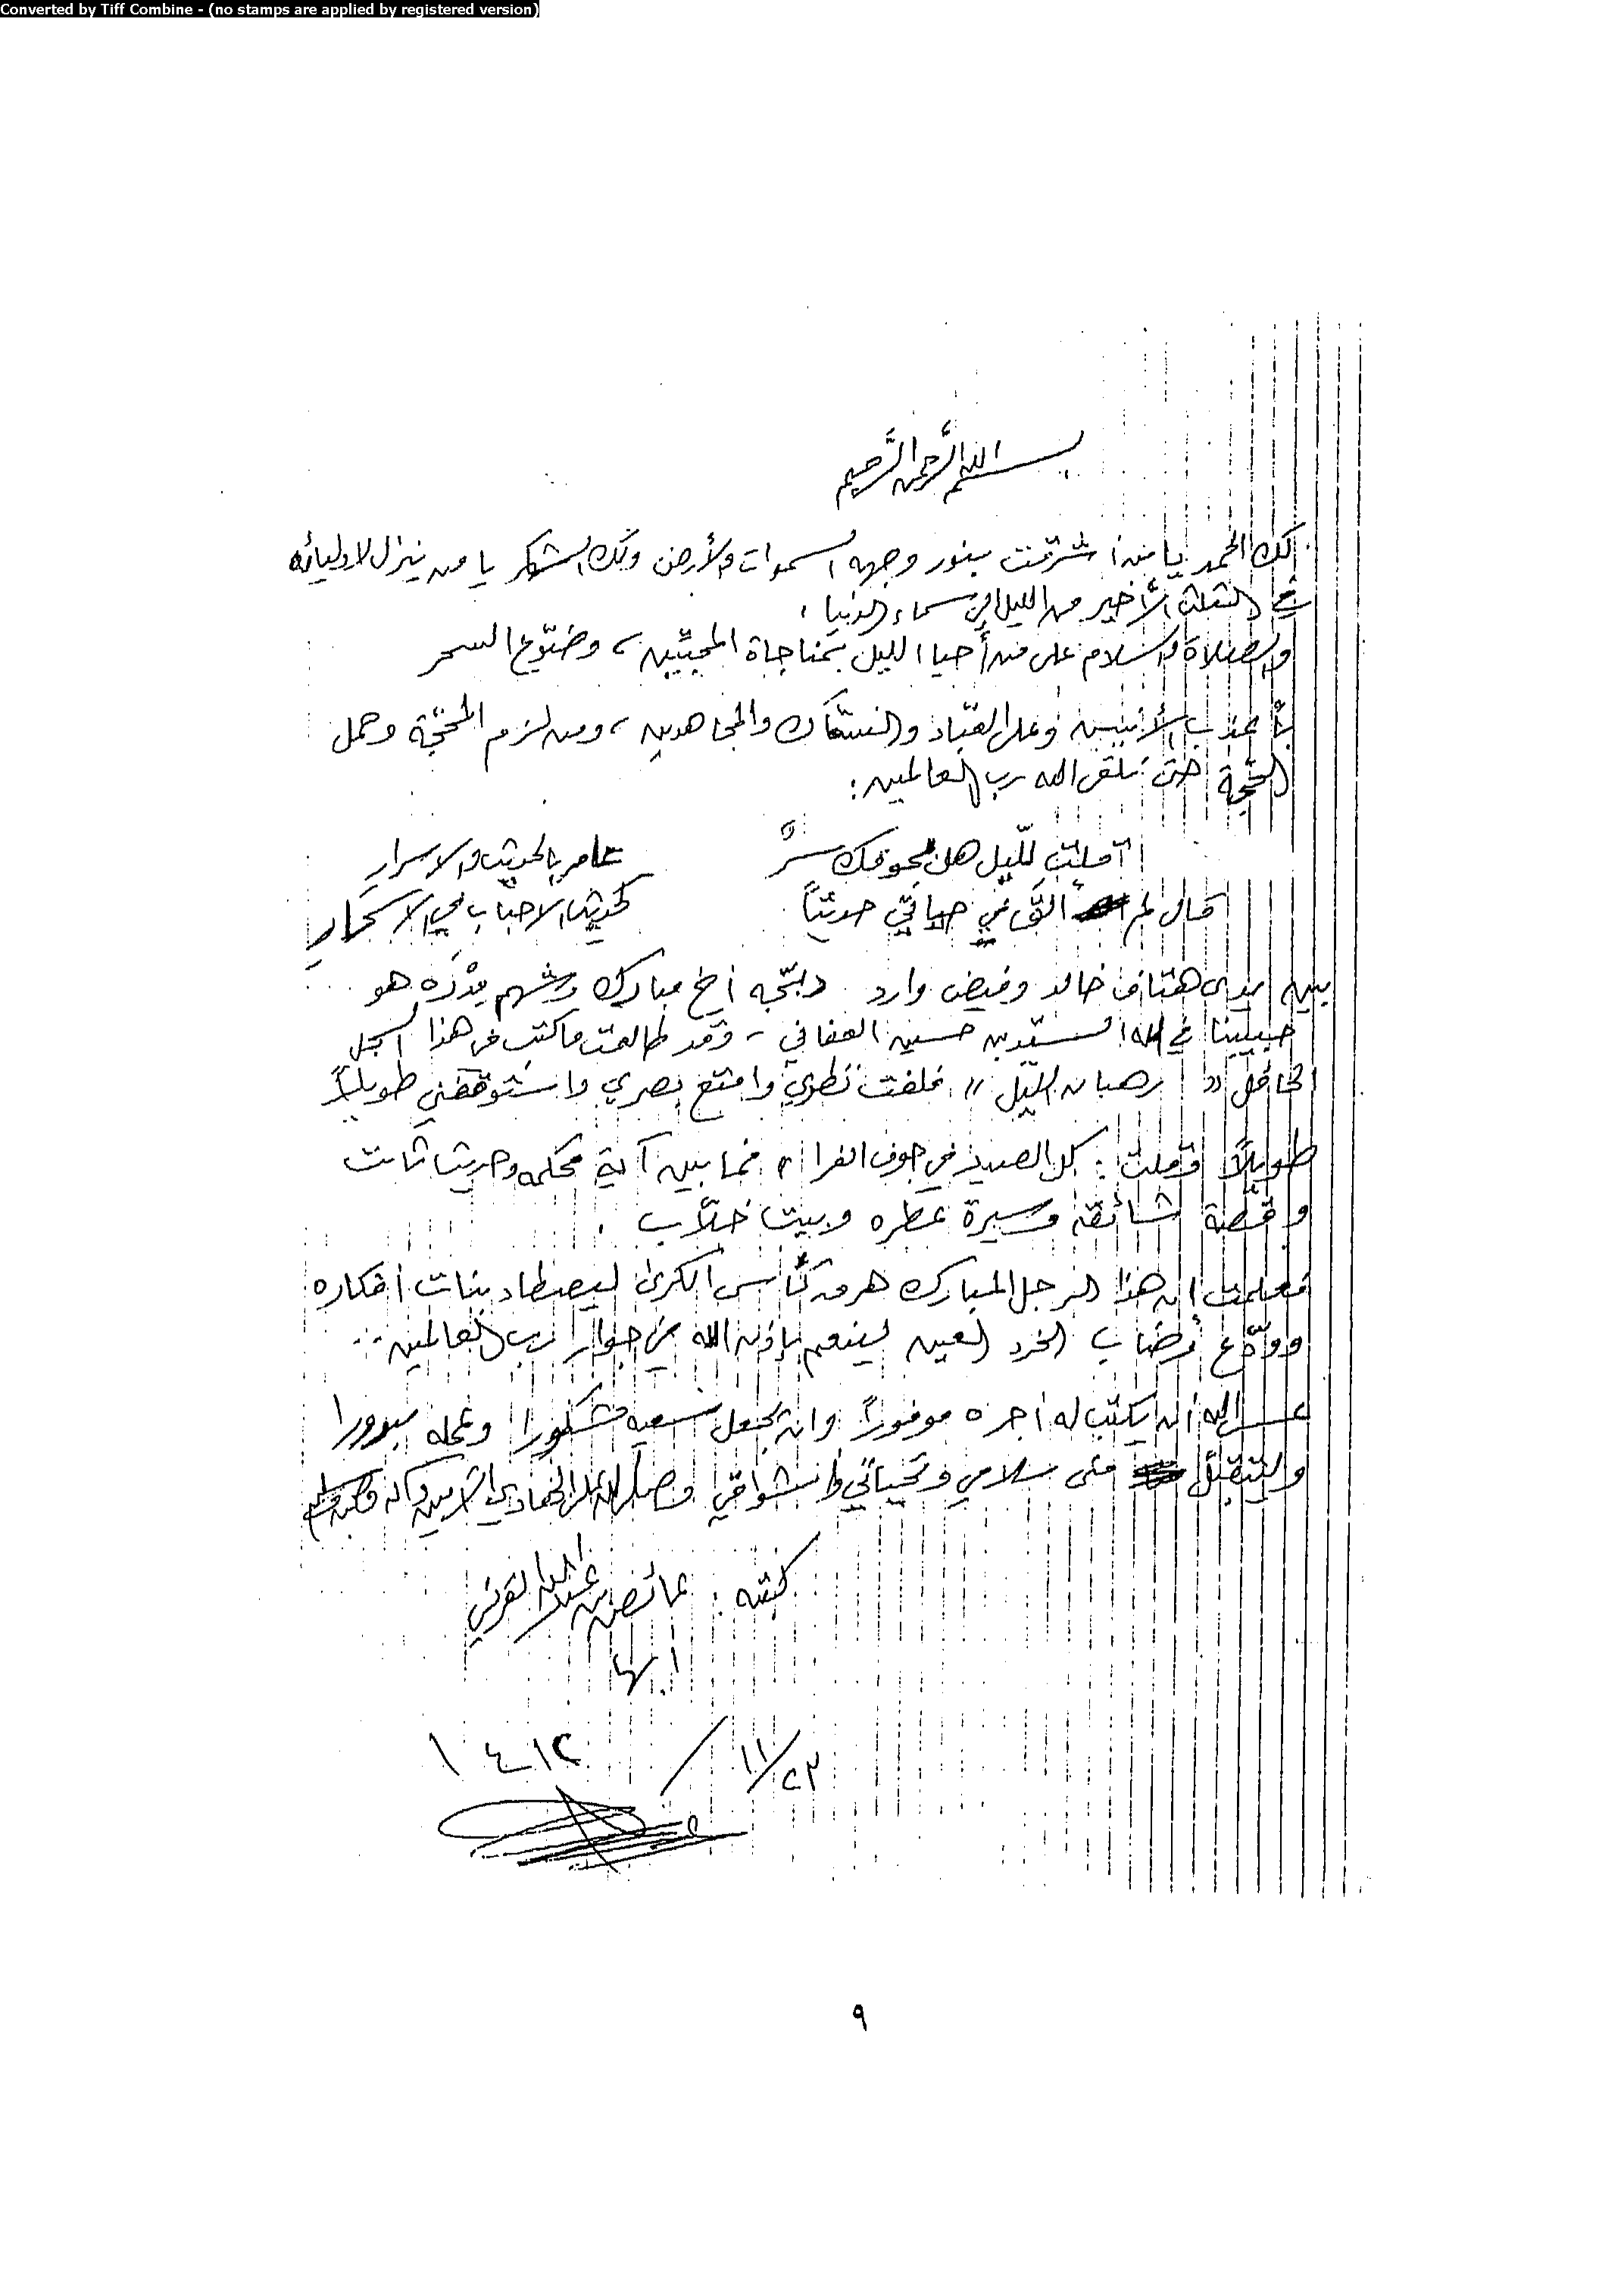 Converted by Tiff Combine - (no stamps are applied by registered version)
بسم الله الرَّحمن الرَّحيم
لك الحمد يا من أشرقت بنور وجهه السموات والأرض ولك الشكر يا من ينزل لاوليائه
في الثلث الأخير من الليل إلى سماء الدنيا،
والصلاة والسلام على من أحيا الليل بمناجاة المحبّين، وضوّع السحر
بأعذب الأنين وعلى العبّاد والنسّاك والمجاهدين، ومن لزم المحجّة وحمل
الحجّة حتى يلقى الله رب العالمين:
قلت لليل هل بجوفك سرٌّ عامر بالحديث والاسرار
قال لم ألق في حياتي حديثاً كحديث الاحباب في الاسحار
بين يدي هتاف خالد وفيض وارد دبّجه أخ مبارك وشهم يدْرَه هو
حبيبنا في الله السيّد بن حسين العفاني - وقد طالعت ما كتب في هذا السجل
الحافل « رهبان الليل » فلفت نظري وامتع بصري واستوقفني طويلاً
طويلاً وقلت: كل الصيد في جوف الفراء فما بين آية محكمه وحديث ثابت
وقصّة شائقه وسيرة عطره وبيت خلّاب.
فعلمت أن هذا الرجل المبارك هرق كأس الكرى ليصطاد بنات أفكاره
وودّع رضاب الخرد العين لينعم بإذن الله في جوار رب العالمين..
عسى الله أن يكتب له أجره موفوراً وان يجعل سعيه مشكورا وعمله مبرورا
وليتقبّل منى سلامي وتحياتي واشواقي وصلى الله على الهادي الأمين وآله وصحبه وسلم
كتبه: عائض بن عبد الله القرني
ابها
٢٣/١١/١٤١٢
٩